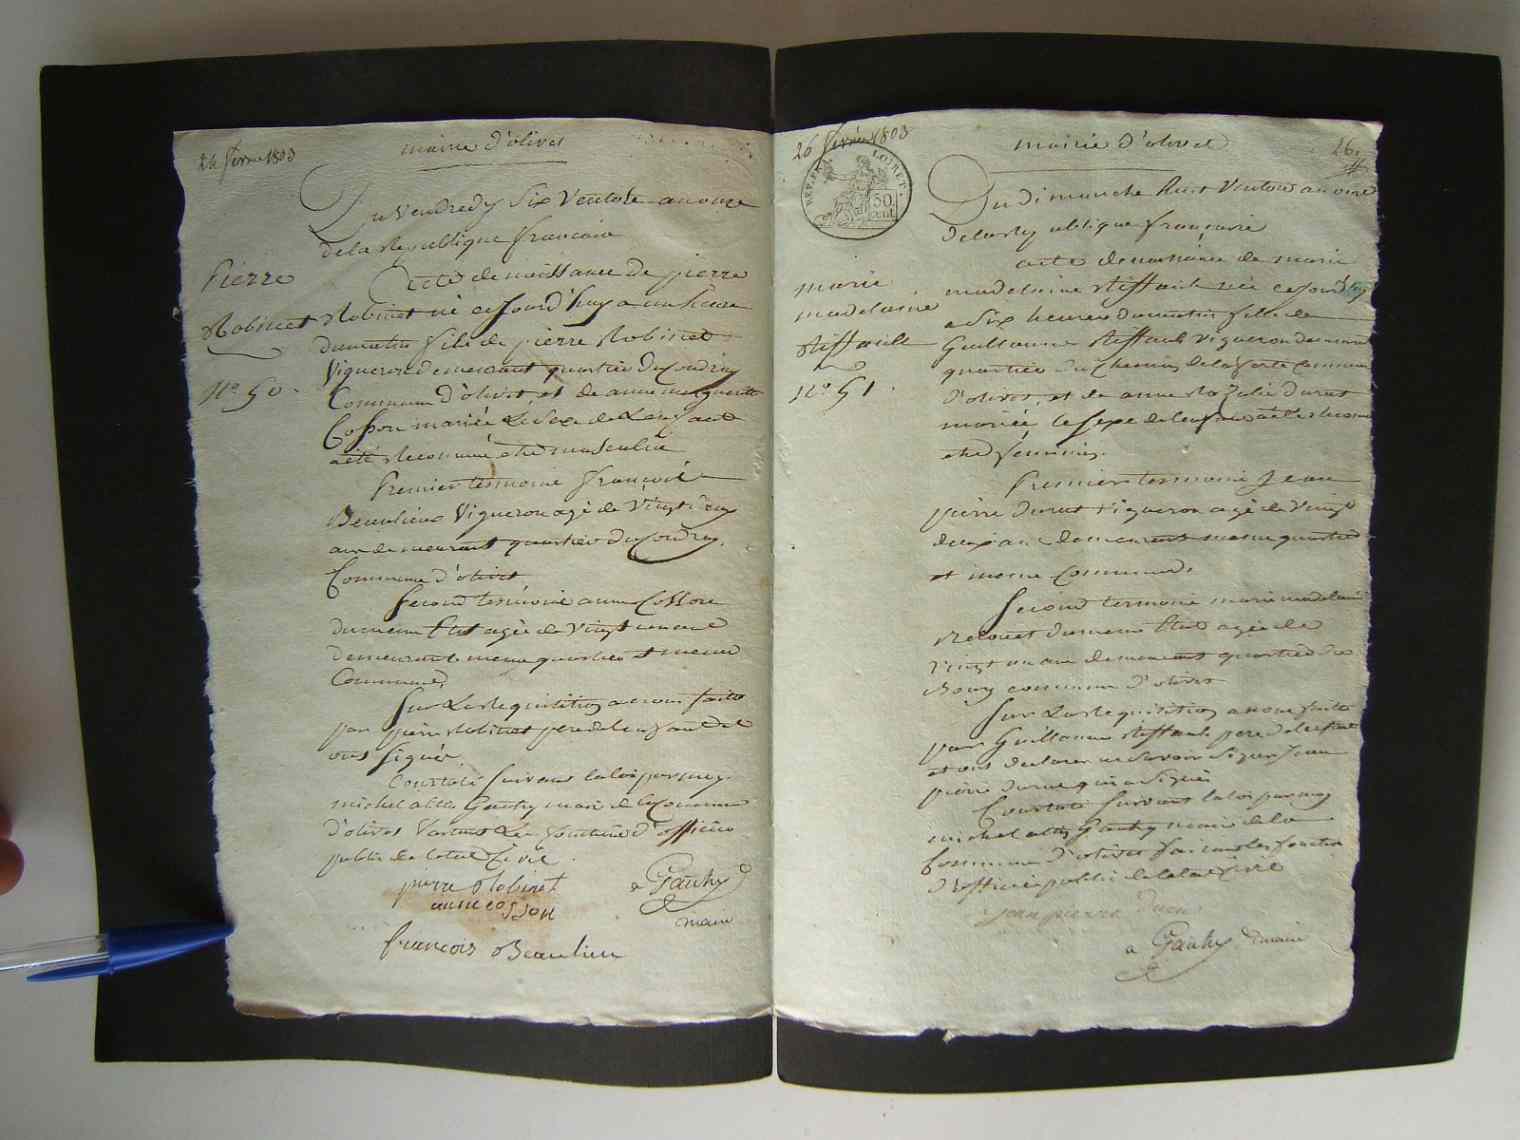 24 février 1803
mairie d'olivet
Du Vendredy Six Ventose an onze
de la Republique francaise
Acte de naissance de pierre
Robinet né cejourd'huy a une heure
du matin fils de pierre Robinet
Vigneron demeurant quartier du Coudray
Commune d'olivet et de anne marguerite
Cosson mariée Le Sexe de Lenfant
a été Reconnu être masculin
Premier temoin françois
Beaulieu Vigneron agé de Vingt
ans demeurant quartier du Coudray
Commune d'olivet
Second temoin anne Cosson
du meme Etat agée de Vingt un ans
demeurante meme quartier et meme
Commune
Sur La Requisition a nous faite
par pierre Robinet pere de lenfant et
ont Signé
Constaté Suivant la loi par moy
michel Gauhy maire de la Commune
d'olivet La fonction d'officier
public de l'etat Civil
pierre Robinet
anne cosson
a Gauhy
maire
françois Beaulieu
Pierre
Robinet
N.º 50.
26 février 1803
mairie d'olivet
26.
LOIRET.
50
cent.
Du dimanche huit Ventose an onze
de la Republique française
acte de naissance de marie
madelaine née cejourd'huy
a Six heures du matin fille de
Guillaume Vigneron demeurant
quartier du Chemin de la ferté Commune
d'olivet, et de anne Rozalie Durut
mariée le Sexe de lenfant a été Reconnu
etre féminin.
Premier temoin Jean
pierre Durut Vigneron agé de Vingt
deux ans demeurant meme quartier
et meme Commune
Second temoin marie madelaine
du meme Etat agée de
Vingt un ans demeurant quartier du
Bourg commune d'olivet
Sur La Requisition a nous faite
par Guillaume pere de lenfant
et ont declarer ne Savoir Signer Jean
pierre Durut qui a Signé
Constaté Suivant la loi par moy
michel Gauhy maire de la
Commune d'olivet faisant les fonction
d'officier public de l'etat Civil
jean pierre
a Gauhy maire
marie
madelaine
N.º 51.